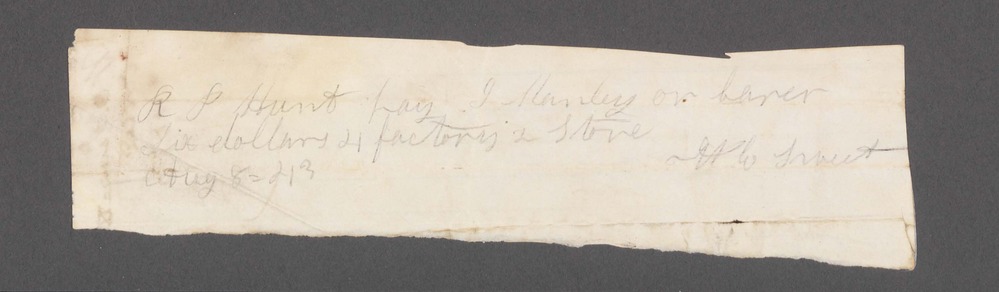 R S Hunt pay J Hanley or barer
Six dollars 4 factory 2 Store
W Sweet
Aug 8 = 43